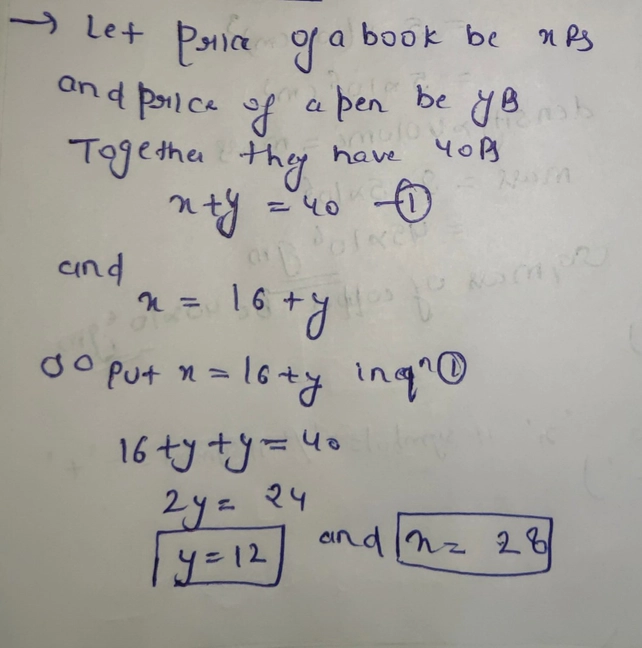 → Let price of a book be x Rs
and price of a pen be y Rs
Together they have 40 Rs
x+y = 40 —①
and
x = 16 + y
So put x = 16 + y in eqⁿ ①
16 + y + y = 40
2y = 24
y = 12 and x = 28